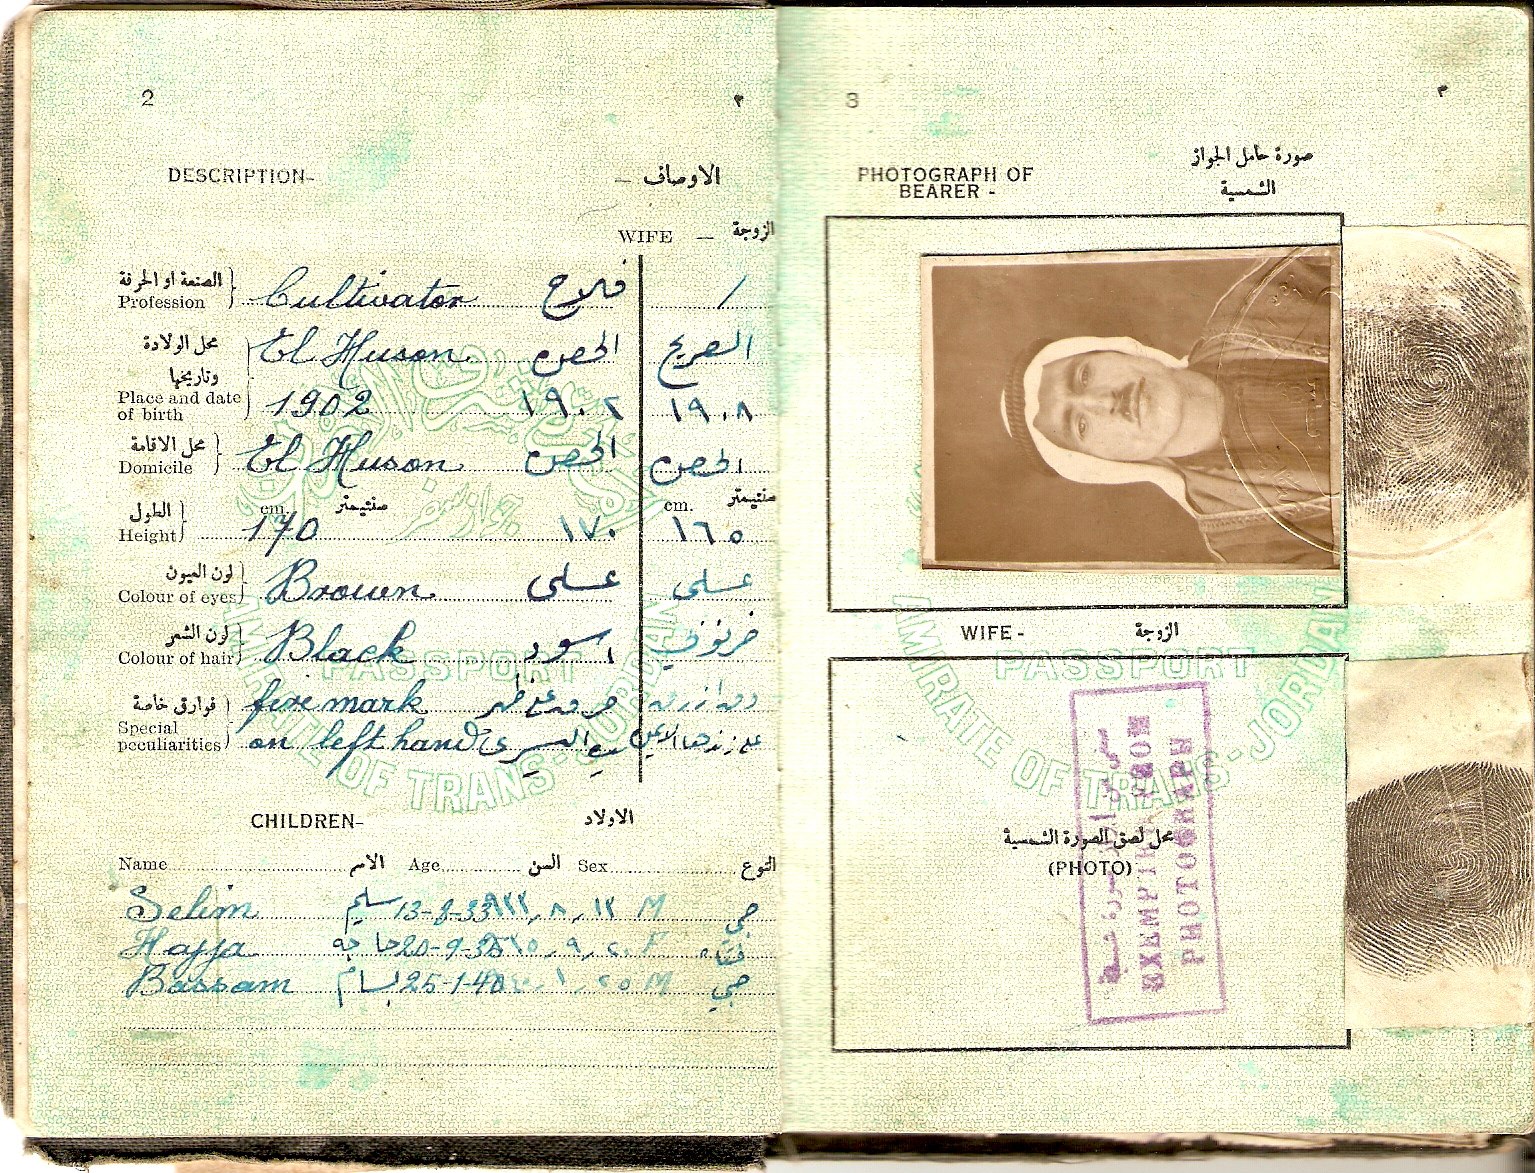 2 ٢
DESCRIPTION- الاوصاف —
WIFE — الزوجة
الصنعة او الحرفة
Profession Cultivator فلاح /
محل الولادة El Huson الحصن الصريح
وتاريخها
Place and date of birth 1902 ١٩٠٢ ١٩٠٨
محل الاقامة
Domicile El Huson الحصن الحصن
الطول cm. سنتيمتر cm. سنتيمتر
Height 170 ١٧٠ ١٦٥
لون العيون
Colour of eyes Brown عسلي عسلي
لون الشعر
Colour of hair Black اسود خرنوبي
فوارق خاصة fire mark
Special peculiarities on left hand اليسرى
CHILDREN- الاولاد
Name الاسم Age السن Sex النوع
Selim سليم 13-8-33 M صبي
Hajja حاجه 20-9-35 F فتاه
Bassam بسام 25-1-40 M صبي
جواز سفر
AMIRATE OF TRANS-JORDAN
PASSPORT
3 ٣
PHOTOGRAPH OF BEARER - صورة حامل الجواز
الشمسية
WIFE - الزوجة
PASSPORT
AMIRATE OF TRANS-JORDAN
محل لصق الصورة الشمسية
(PHOTO)
EXEMPTED FROM
PHOTOGRAPH